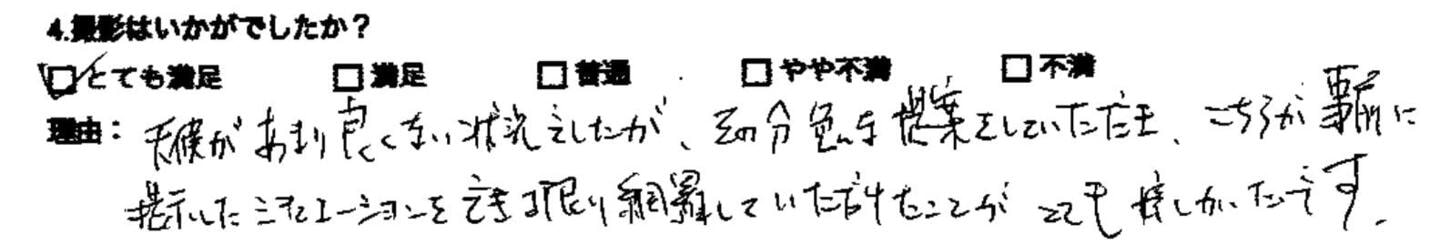 4.撮影はいかがでしたか？
☑とても満足 □満足 □普通 □やや不満 □不満
理由：天候があまり良くない状況でしたが、その分色んな提案をしていただき、こちらが事前に
提示したシチュエーションをできる限り網羅していただけたことがとても嬉しかったです。